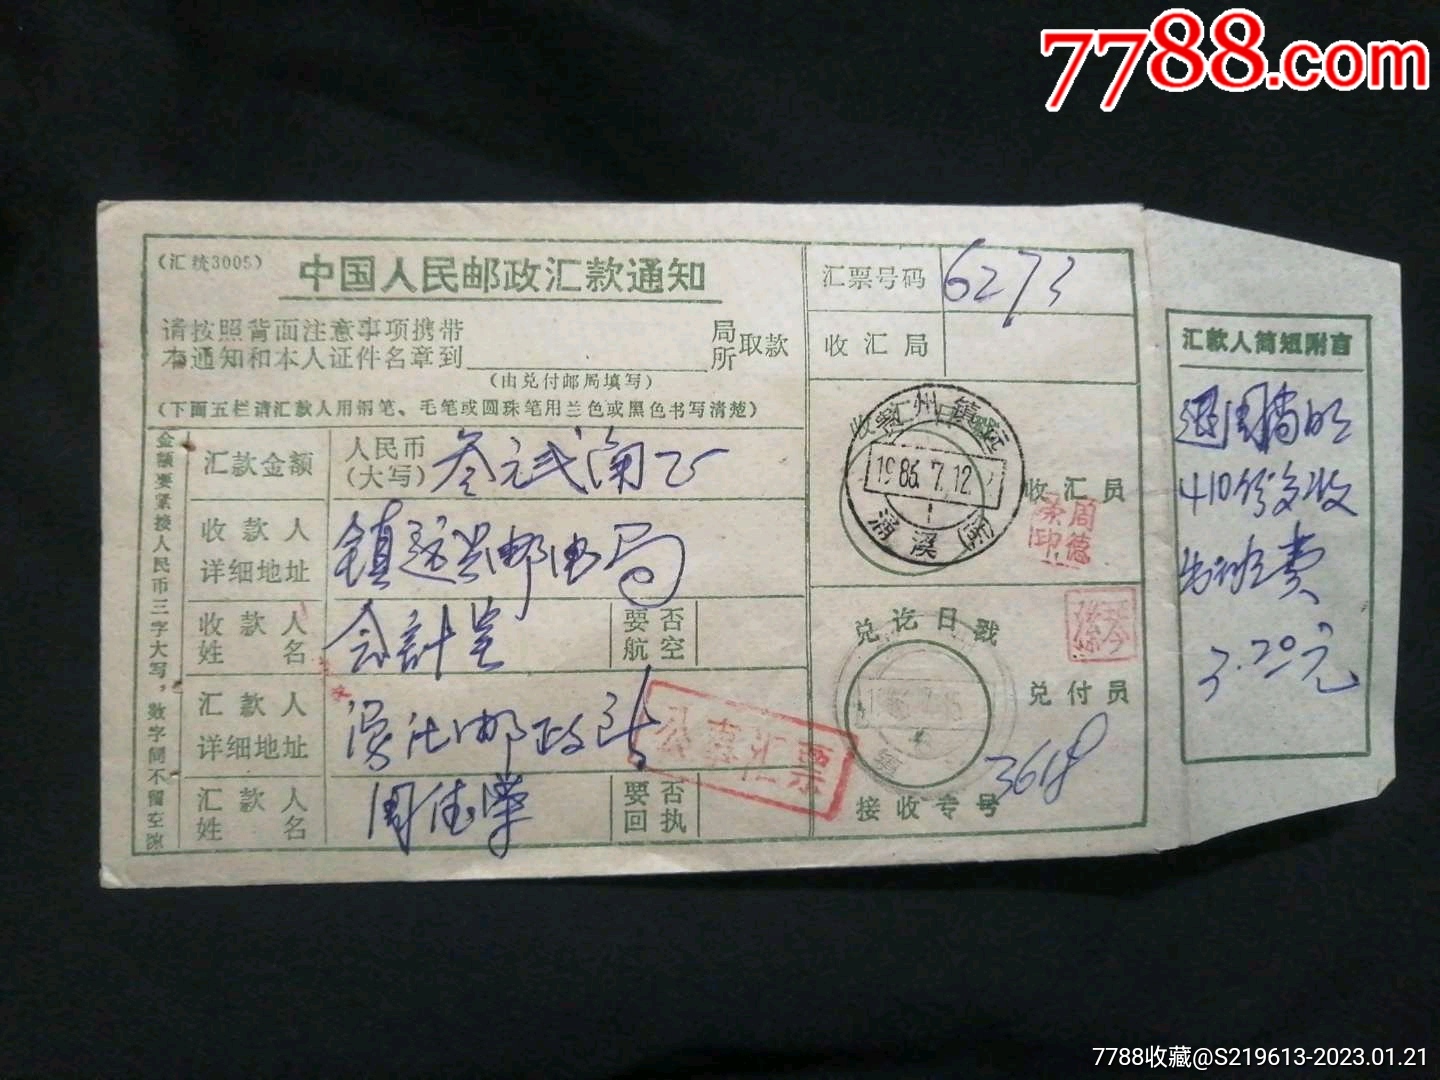 7788.com
(汇统3005)
中国人民邮政汇款通知
请按照背面注意事项携带
本通知和本人证件名章到
局
所
取款
(由兑付邮局填写)
(下面五栏请汇款人用钢笔、毛笔或圆珠笔用兰色或黑色书写清楚)
金额要紧接人民币三字大写，数字间不留空隙
汇款金额
人民币
(大写)
叁元贰角正
收款人
详细地址
镇远县邮电局
收款人
姓名
会計室
要否
航空
汇款人
详细地址
邮政
汇款人
姓名
周德荣
要否
回执
汇票号码
6273
收汇局
贵州镇远
1986.7.12
涌溪
收汇员
周德
荣印
兑讫日戳
1986.7.15
兑付员
接收专号
3618
汇票
汇款人简短附言
410份
费
3.20元
7788收藏@S219613-2023.01.21